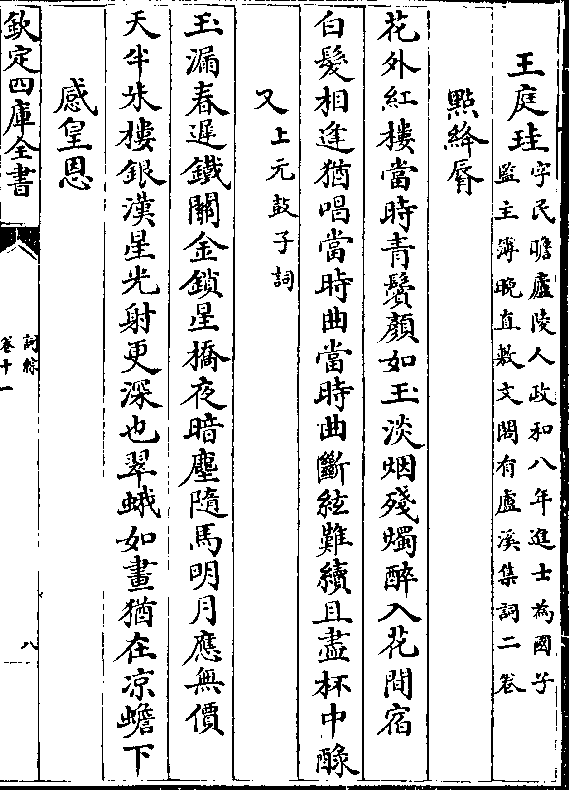 王庭珪字民瞻廬陵人政和八年進士為國子
監主簿晚直敷文閣有盧溪集詞二卷
點絳脣
花外紅樓當時青鬢顏如玉淡烟殘燭醉入花間宿
白髮相逢猶唱當時曲當時曲斷絃難續且盡杯中醁
又上元鼓子詞
玉漏春遲鐵關金鎖星橋夜暗塵隨馬明月應無價
天半朱樓銀漢星光射更深也翠蛾如畫猶在凉蟾下
感皇恩
欽定四庫全書
詞綜
卷十一
八